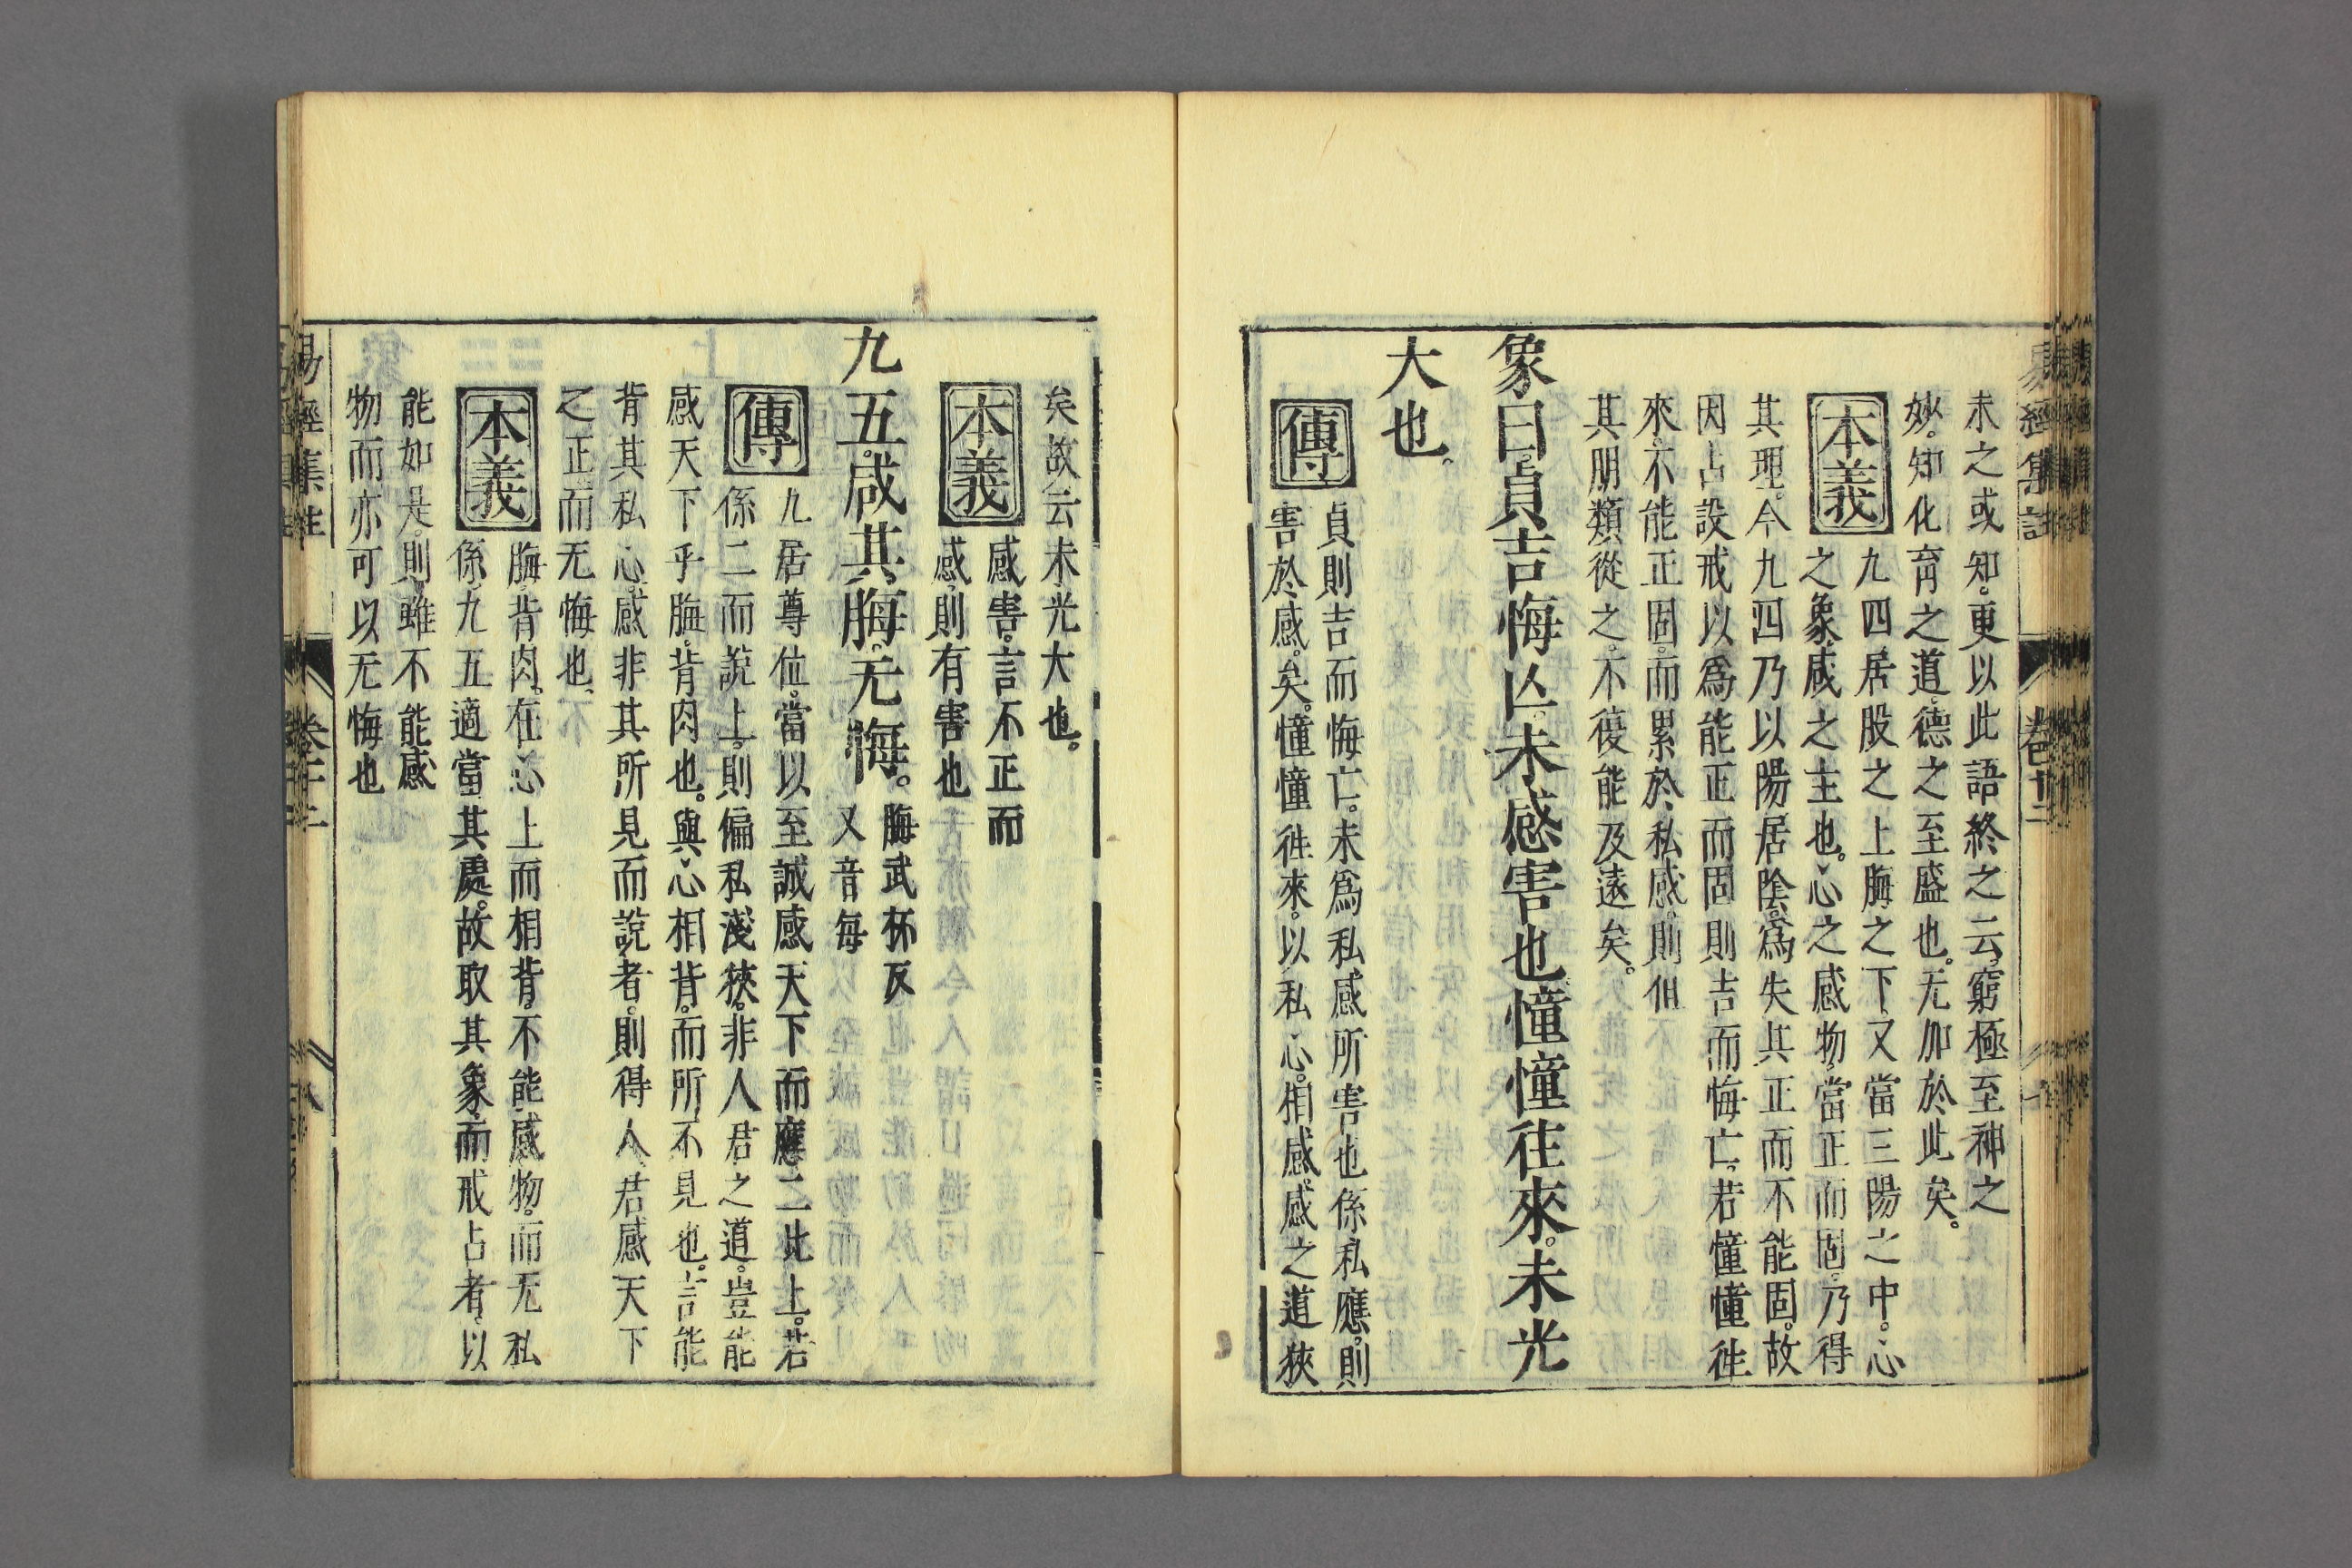 未之或知更以此語終之云窮極至神之
妙知化育之道德之至盛也无加於此矣
本義
九四居股之上脢之下又當三陽之中心
之象咸之主也心之感物當正而固乃得
其理今九四乃以陽居陰爲失其正而不能固故
因占設戒以爲能正而固則吉而悔亡若憧憧徃
來不能正固而累於私感則但
其朋類從之不復能及遠矣
象曰貞吉悔亾未感害也憧憧徃來未光
大也
傳
貞則吉而悔亡未爲私感所害也係私應則
害於感矣憧憧徃來以私心相感感之道狹
矣故云未光大也
本義
感害言不正而
感則有害也
九五咸其脢无悔
脢武杯反
又音每
傳
九居尊位當以至誠感天下而應二比上若
係二而說上則偏私淺狹非人君之道豈能
感天下乎脢背肉也與心相背而所不見也言能
背其私心感非其所見而說者則得人君感天下
之正而无悔也
本義
脢背肉在心上而相背不能感物而无私
係九五適當其處故取其象而戒占者以
能如是則雖不能感
物而亦可以无悔也
易經集註
卷十二
八